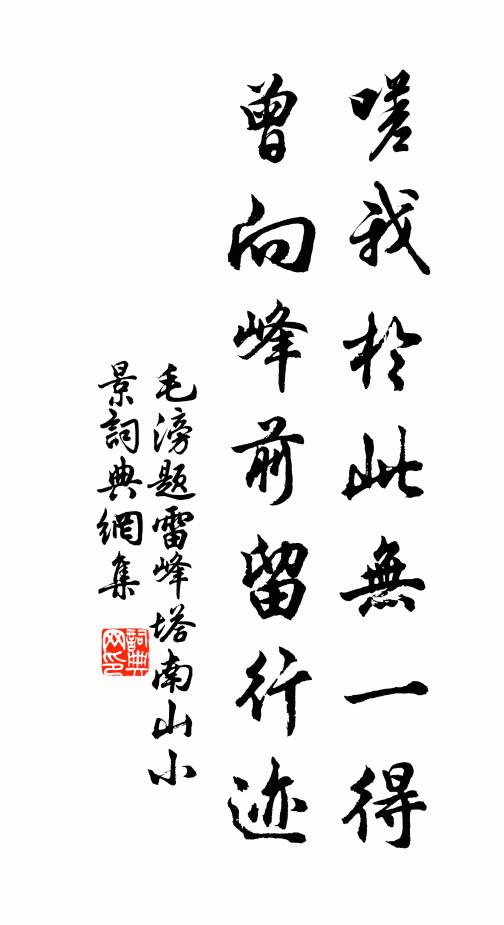 嗟我於此無一得
曾向峰前留行迹
毛滂題雷峰塔南山小
景詞典網集
詞典
网印